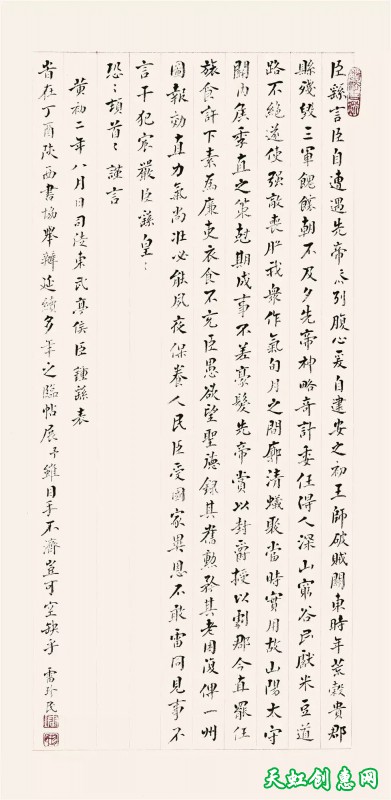 臣繇言臣自遭遇先帝忝列腹心爰自建安之初王師破賊關東時年荒穀貴郡
縣殘毀三軍餽饟朝不及夕先帝神略奇計委任得人深山窮谷民獻米豆道
路不絕遂使强敵喪膽我衆作氣旬月之間廓清蟻聚當時實用故山陽太守
關內侯季直之策剋期成事不差豪髮先帝賞以封爵授以劇郡今直罷任
旅食許下素為廉吏衣食不充臣愚欲望聖德錄其舊勳矜其老困復俾一州
圖報効直力氣尚壯必能夙夜保養人民臣受國家異恩不敢雷同見事不
言干犯宸嚴臣繇皇〻
恐〻頓首〻謹言
黃初二年八月日司徒東武亭侯臣鍾繇表
昔在丁酉陝西書協舉辦延續多年之臨帖展予雖目手不濟豈可空缺乎 雷珍民
天虹创惠网